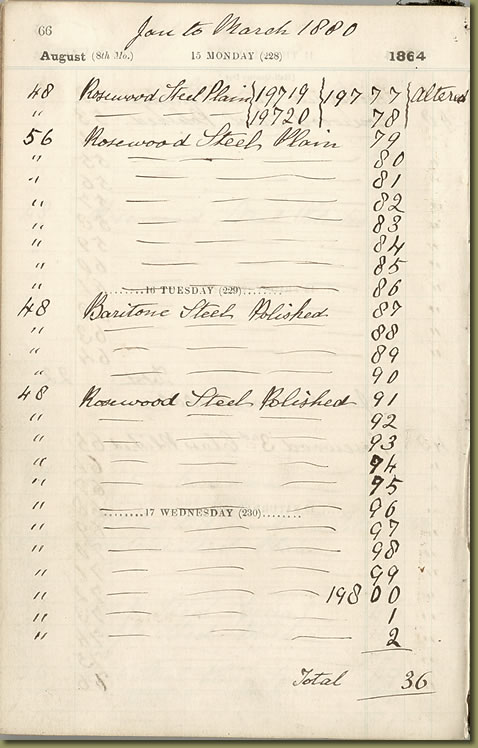 66
Jan to March 1880
August (8th Mo.) 15 MONDAY (228) 1864
48 Rosewood Steel Plain } 19719 } 197 7 7 } Altered
" — — — } 19720 } 78 }
56 Rosewood Steel Plain 79
" — — — 80
" — — — 81
" — — — 82
" — — — 83
" — — — 84
" — — — 85
" — — — 86
........16 TUESDAY (229)........
48 Baritone Steel Polished 87
" — — — 88
" — — — 89
" — — — 90
48 Rosewood Steel Polished 91
" — — — 92
" — — — 93
" — — — 94
" — — — 95
" — — — 96
........17 WEDNESDAY (230)........
" — — — 97
" — — — 98
" — — — 99
" — — — 198 0 0
" — — — 1
" — — — 2
Total 36